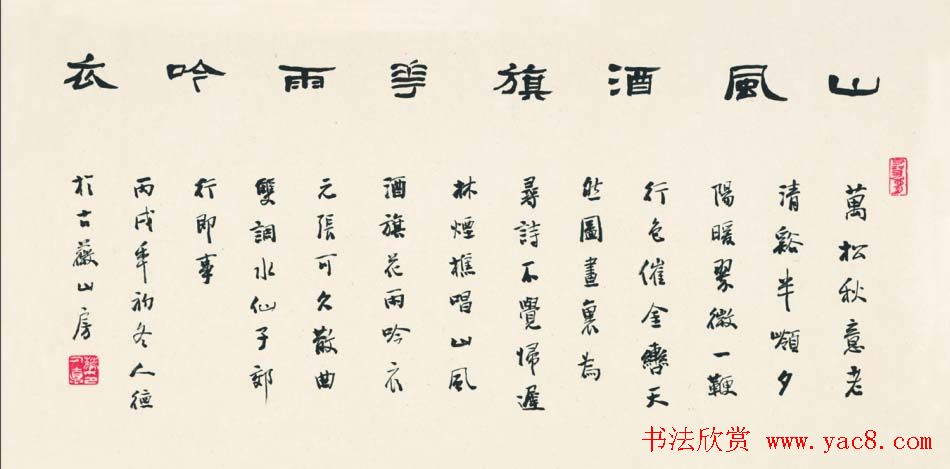 山風酒旗華雨吟衣
萬松秋意老
清谿半嶺夕
陽暖翠微一鞭
行色催金轡天
然圖畫裏為
尋詩不覺歸遲
林煙樵唱山風
酒旗花雨吟衣
元張可久散曲
雙調水仙子郊
行即事
丙戌年初冬人德
於古薇山房
书法欣赏 www.yac8.com